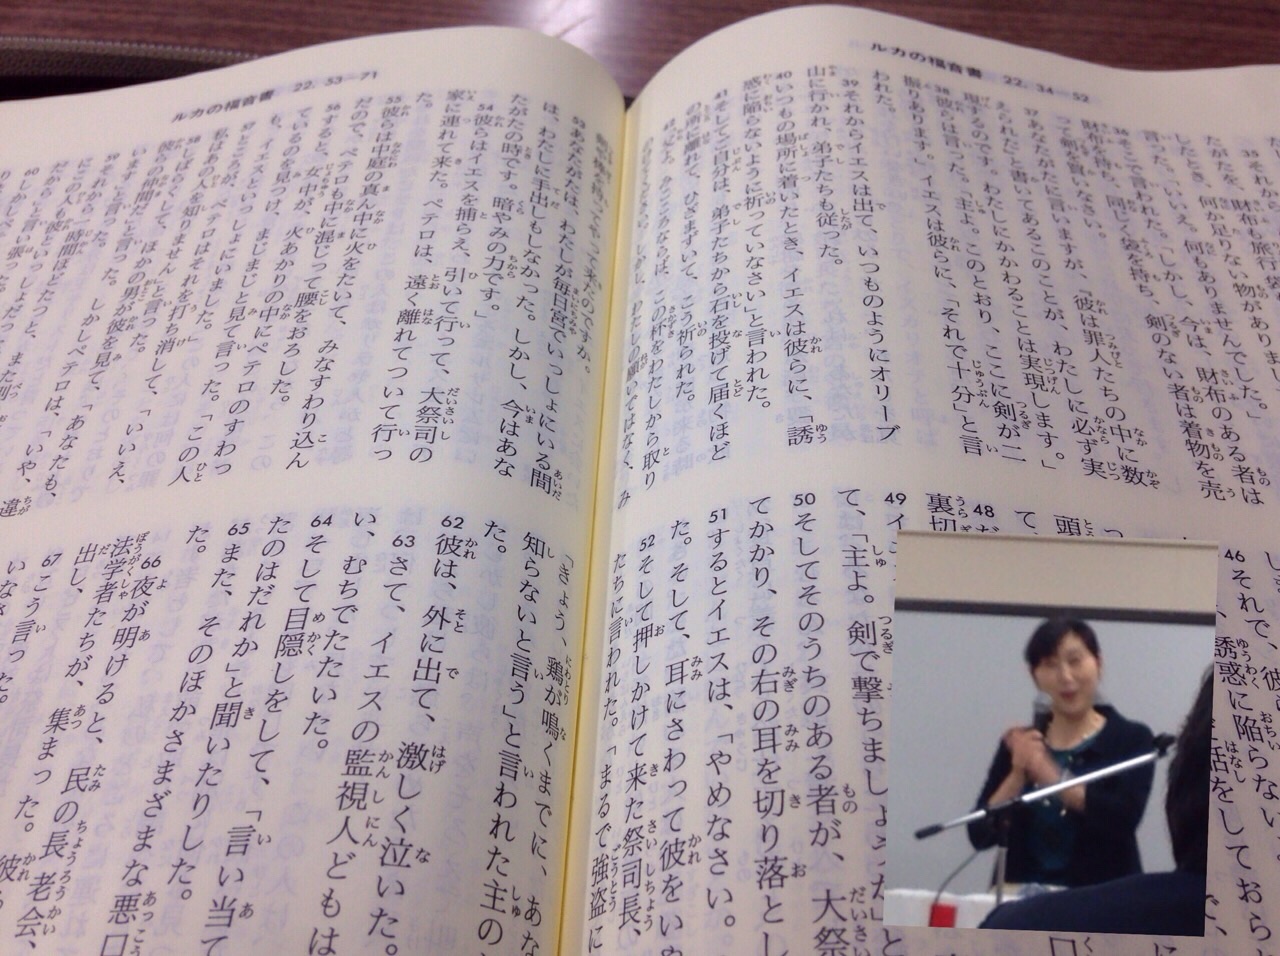 ルカの福音書 22. 34―52
たがたを、財布も旅行袋
したとき、何か足りない物がありましたか。」
言った。「いいえ。何もありませんでした。」
36そこで言われた。「しかし、今は、財布のある者は
財布を持ち、同じく袋を持ち、剣のない者は着物を売
って剣を買いなさい。
37あなたがたに言いますが、『彼は罪人たちの中に数
えられた』と書いてあるこのことが、わたしに必ず実
現するのです。わたしにかかわることは実現します。」
38彼らは言った。「主よ。このとおり、ここに剣が二
振りあります。」イエスは彼らに、「それで十分」と言
われた。
39それからイエスは出て、いつものようにオリーブ
山に行かれ、弟子たちも従った。
40いつもの場所に着いたとき、イエスは彼らに、「誘
惑に陥らないように祈っていなさい」と言われた。
41そしてご自分は、弟子たちから石を投げて届くほど
の所に離れて、ひざまずいて、こう祈られた。
この杯をわたしから取り
わたしの願いではなく、み
46それで、彼ら
誘惑に陥らない
話をしておら
頭
て、
48だ
裏切
49イ
て、「主よ。剣で撃ちましょうか」と
50そしてそのうちのある者が、大祭
てかかり、その右の耳を切り落とし
51するとイエスは、「やめなさい。
た。そして、耳にさわって彼をいや
52そして押しかけて来た祭司長、
たちに言われた。「まるで強盗に
ルカの福音書 22. 53―71
やって来たのですか。
53あなたがたは、わたしが毎日宮でいっしょにいる間
は、わたしに手出しもしなかった。しかし、今はあな
たがたの時です。暗やみの力です。」
54彼らはイエスを捕らえ、引いて行って、大祭司の
家に連れて来た。ペテロは、遠く離れてついて行っ
た。
55彼らは中庭の真ん中に火をたいて、みなすわり込ん
だので、ペテロも中に混じって腰をおろした。
56すると、女中が、火あかりの中にペテロのすわっ
ているのを見つけ、まじまじと見て言った。「この人
も、イエスといっしょにいました。」
57ところが、ペテロはそれを打ち消して、「いいえ、
私はあの人を知りません」と言った。
58しばらくして、ほかの男が彼を見て、「あなたも、
彼らの仲間だ」と言った。しかしペテロは、「いや、違
います」と言った。
59それから一時間ほどたつと、また別
「この人も彼といっしょだった。
だから」と言い張った。
60しかしペテ
「きょう、鶏が鳴くまでに、あな
知らないと言う」と言われた主の
た。
62彼は、外に出て、激しく泣いた。
63さて、イエスの監視人どもは
い、むちでたたいた。
64そして目隠しをして、「言い当て
たのはだれか」と聞いたりした。
65また、そのほかさまざまな悪口
た。
66夜が明けると、民の長老会、
法学者たちが、集まった。彼ら
出し、
67こう言った。
いなさ